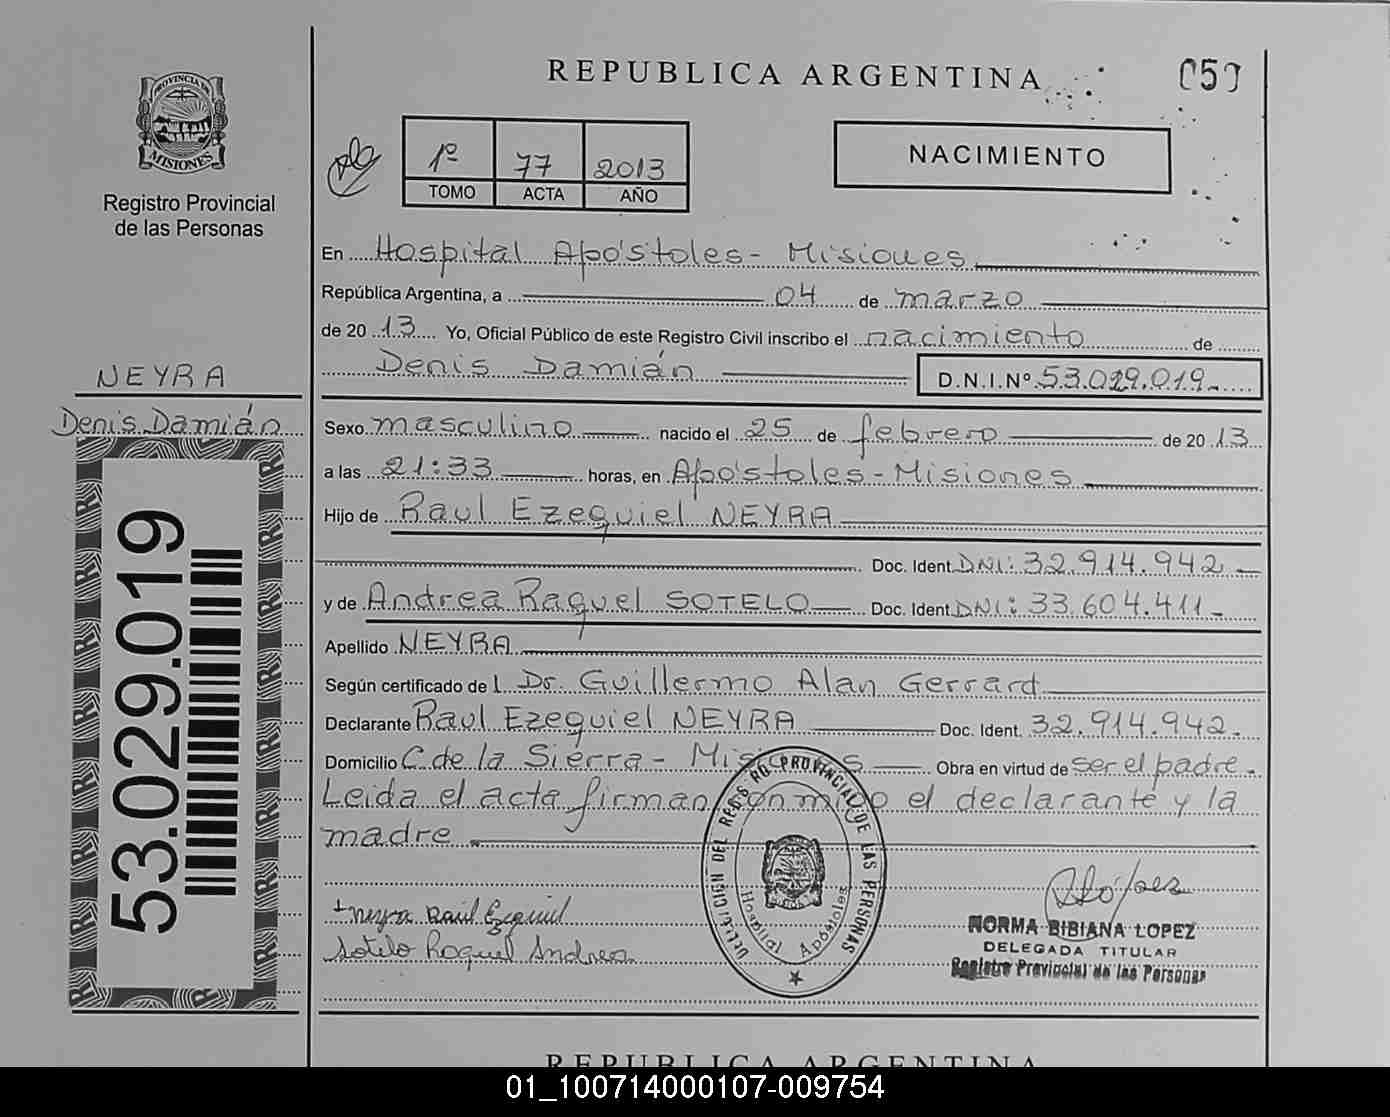 REPUBLICA ARGENTINA
059
PROVINCIA DE
MISIONES
Registro Provincial
de las Personas
1º 77 2013
TOMO ACTA AÑO
NACIMIENTO
En Hospital Apóstoles - Misiones
República Argentina, a 04 de marzo
de 20 13 Yo, Oficial Público de este Registro Civil inscribo el nacimiento de
Denis Damián D.N.I.Nº 53.029.019.-
NEYRA
Denis Damián
53.029.019
Sexo masculino nacido el 25 de febrero de 20 13
a las 21:33 horas, en Apóstoles - Misiones
Hijo de Raul Ezequiel NEYRA
Doc. Ident. DNI: 32.914.942 -
y de Andrea Raquel SOTELO Doc. Ident. DNI: 33.604.411 -
Apellido NEYRA
Según certificado de l Dr. Guillermo Alan Gerrard
Declarante Raul Ezequiel NEYRA Doc. Ident. 32.914.942.
Domicilio C. de la Sierra - Misiones Obra en virtud de ser el padre.
Leida el acta firman conmigo el declarante y la
madre
DELEGACION DEL REGISTRO PROVINCIAL DE LAS PERSONAS
Hospital Apóstoles
Neyra Raúl Ezequiel
Sotelo Raquel Andrea
NORMA BIBIANA LOPEZ
DELEGADA TITULAR
Registro Provincial de las Personas
REPUBLICA ARGENTINA
01_100714000107-009754